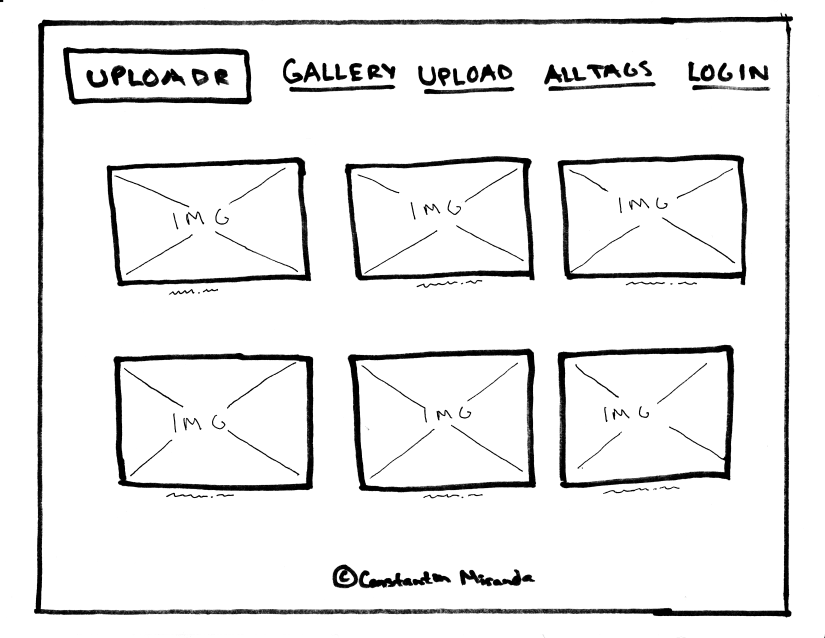 UPLOADR GALLERY UPLOAD ALL TAGS LOGIN
IMG IMG IMG
IMG IMG IMG
© Constantin Miranda